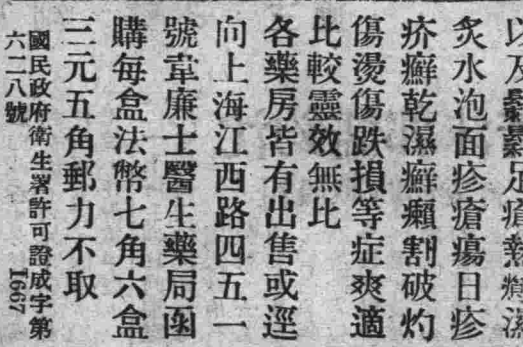 以及
足瘡
炙水泡面疹瘡瘍日疹
疥癬乾濕癬癩割破灼
傷燙傷跌損等症爽適
比較靈效無比
各藥房皆有出售或逕
向上海江西路四五一
號韋廉士醫生藥局函
購每盒法幣七角六盒
三元五角郵力不取
國民政府衛生署許可證成字第
六二八號
1667